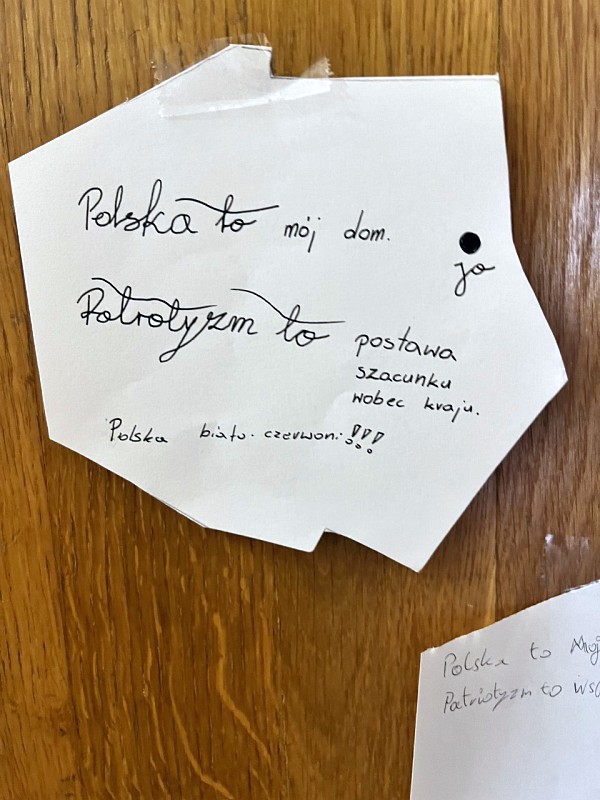 Polska to mój dom.
ja
Patrotyzm to postawa
szacunku
wobec kraju.
Polska biało-czerwoni!!!
Polska to
Patriotyzm to